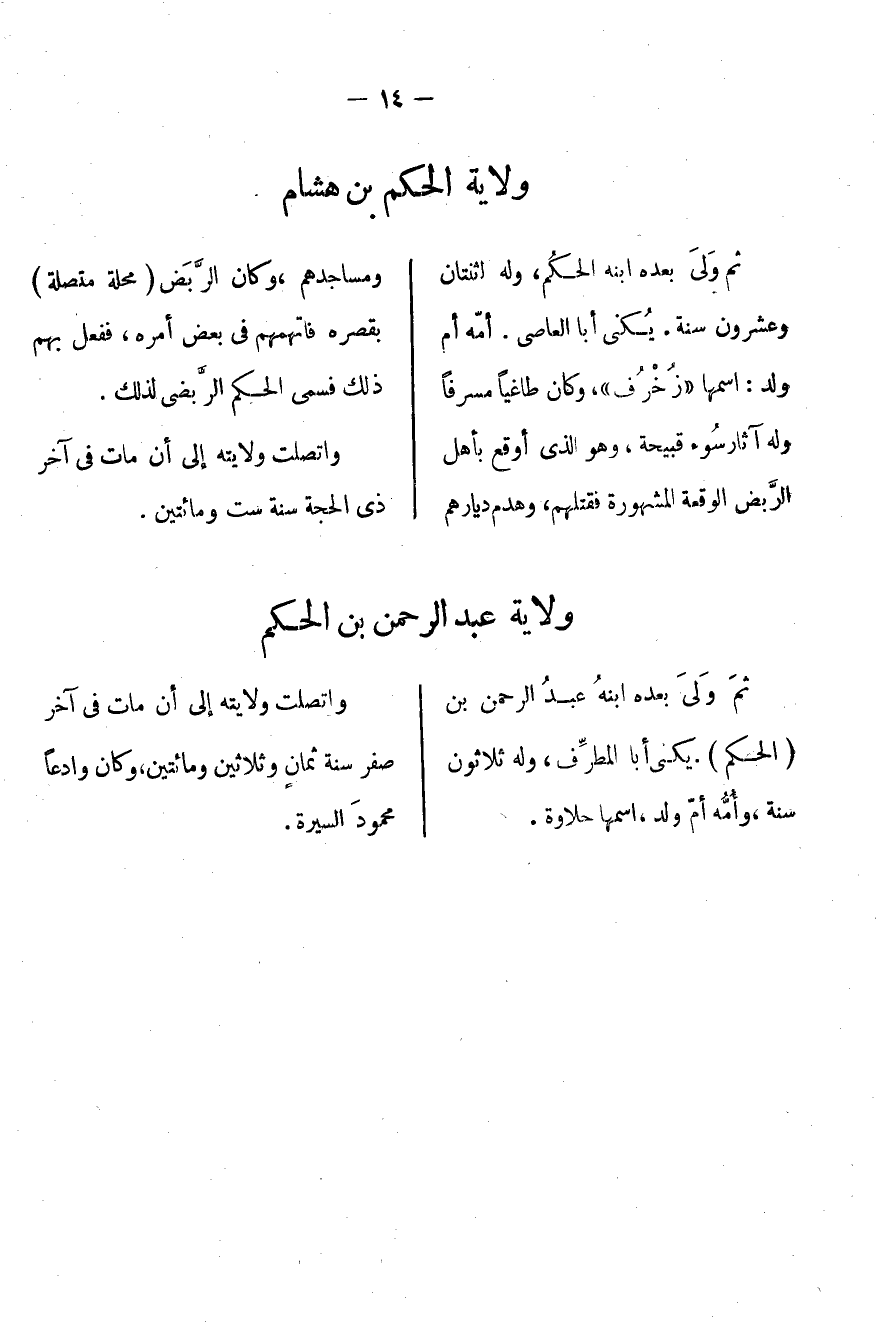 — ١٤ —
ولاية الحكم بن هشام
ثم وَلىَ بعده ابنه الحكُم، وله اثنتان
وعشرون سنة . يُكنى أبا العاصى . أمّه أم
ولد : اسمها «زُخْرُف»، وكان طاغياً مسرفاً
وله آثارسُوء قبيحة ، وهو الذى أوقع بأهل
الرَّبض الوقعة المشهورة فقتلهم، وهدم ديارهم
ومساجدهم ،وكان الرَّبَض ( محلة متصلة )
بقصره فاتهمهم فى بعض أمره ، ففعل بهم
ذلك فسمى الحكم الرَّبضى لذلك .
واتصلت ولايته إلى أن مات فى آخر
ذى الحجة سنة ست ومائتين .
ولاية عبد الرحمن بن الحكم
ثمَ وَلىَ بعده ابنهُ عبدُ الرحمن بن
( الحكم ) . يكنى أبا المطرِّف ، وله ثلاثون
سنة ،وأُمُّه أمّ ولد ،اسمها حلاوة .
واتصلت ولايته إلى أن مات فى آخر
صفر سنة ثمانٍ وثلاثين ومائتين،وكان وادعاً
محمودَ السيرة .